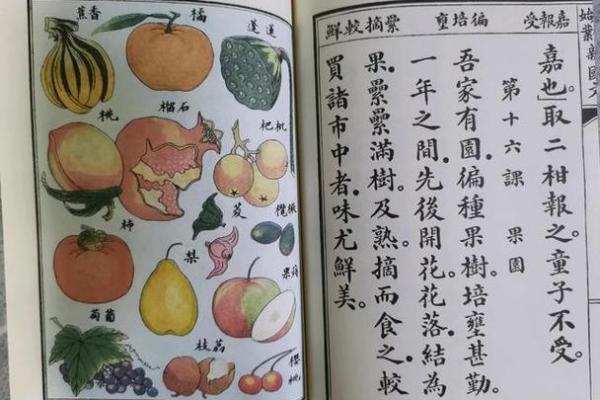 嘉報受
徧培壅
纍摘較鮮
嘉也。」取二柑報之。童子不受。
第十六課 果園
吾家有園。徧種果樹。培壅甚勤。
一年之間。先後開花。花落。結為
果。纍纍滿樹。及熟。摘而食之。較
買諸市中者。味尤鮮美。
蓮蓬
橘
香蕉
枇杷
石榴
桃
橄欖
菱
柿
蘋果
梨
葡萄
櫻桃
荔枝